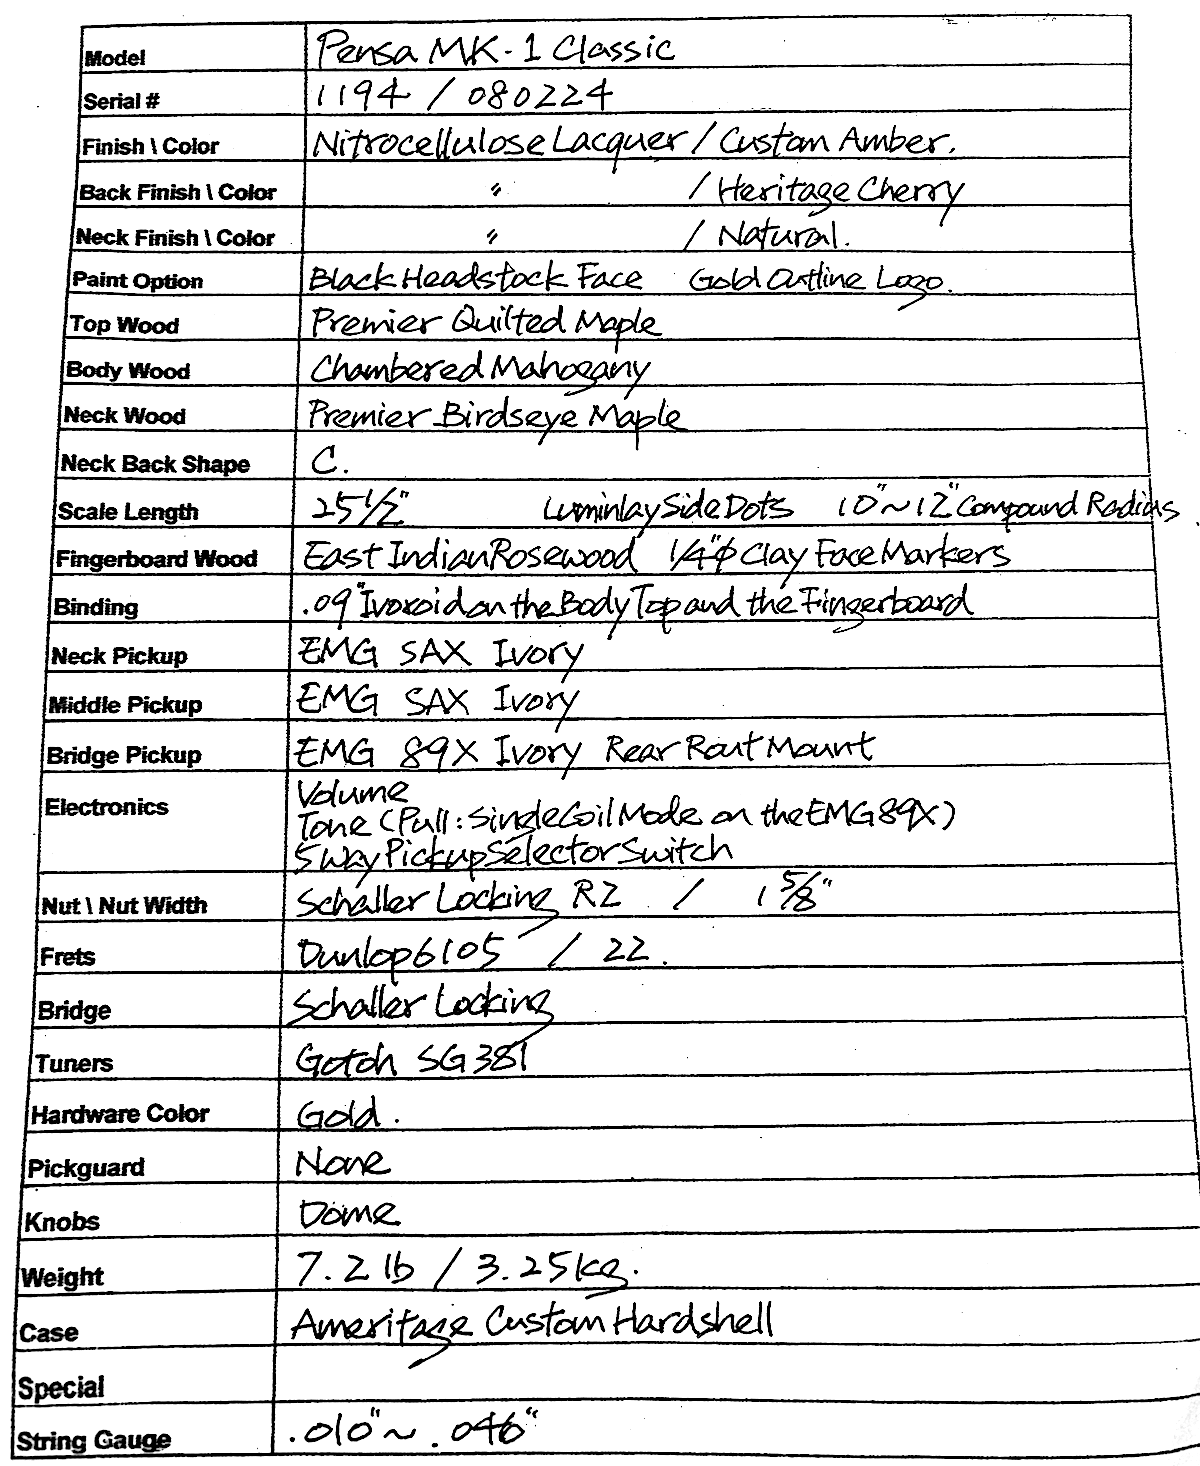 Model Pensa MK-1 Classic
Serial # 1194 / 080224
Finish \ Color Nitrocellulose Lacquer / Custom Amber.
Back Finish \ Color " / Heritage Cherry
Neck Finish \ Color " / Natural.
Paint Option Black Headstock Face Gold Outline Logo.
Top Wood Premier Quilted Maple
Body Wood Chambered Mahogany
Neck Wood Premier Birdseye Maple
Neck Back Shape C.
Scale Length 25 1/2" Luminlay Side Dots 10"~12" Compound Radius.
Fingerboard Wood East Indian Rosewood 1/4"φ Clay Face Markers
Binding .09" Ivoroid on the Body Top and the Fingerboard
Neck Pickup EMG SAX Ivory
Middle Pickup EMG SAX Ivory
Bridge Pickup EMG 89X Ivory Rear Rout Mount
Electronics Volume
Tone (Pull: Single Coil Mode on the EMG 89X)
5 way Pickup Selector Switch
Nut \ Nut Width Schaller Locking R2 / 1 5/8"
Frets Dunlop 6105 / 22.
Bridge Schaller Locking
Tuners Gotoh SG381
Hardware Color Gold.
Pickguard None
Knobs Dome
Weight 7.2 lb / 3.25 kg.
Case Ameritage Custom Hardshell
Special
String Gauge .010" ~ .046"